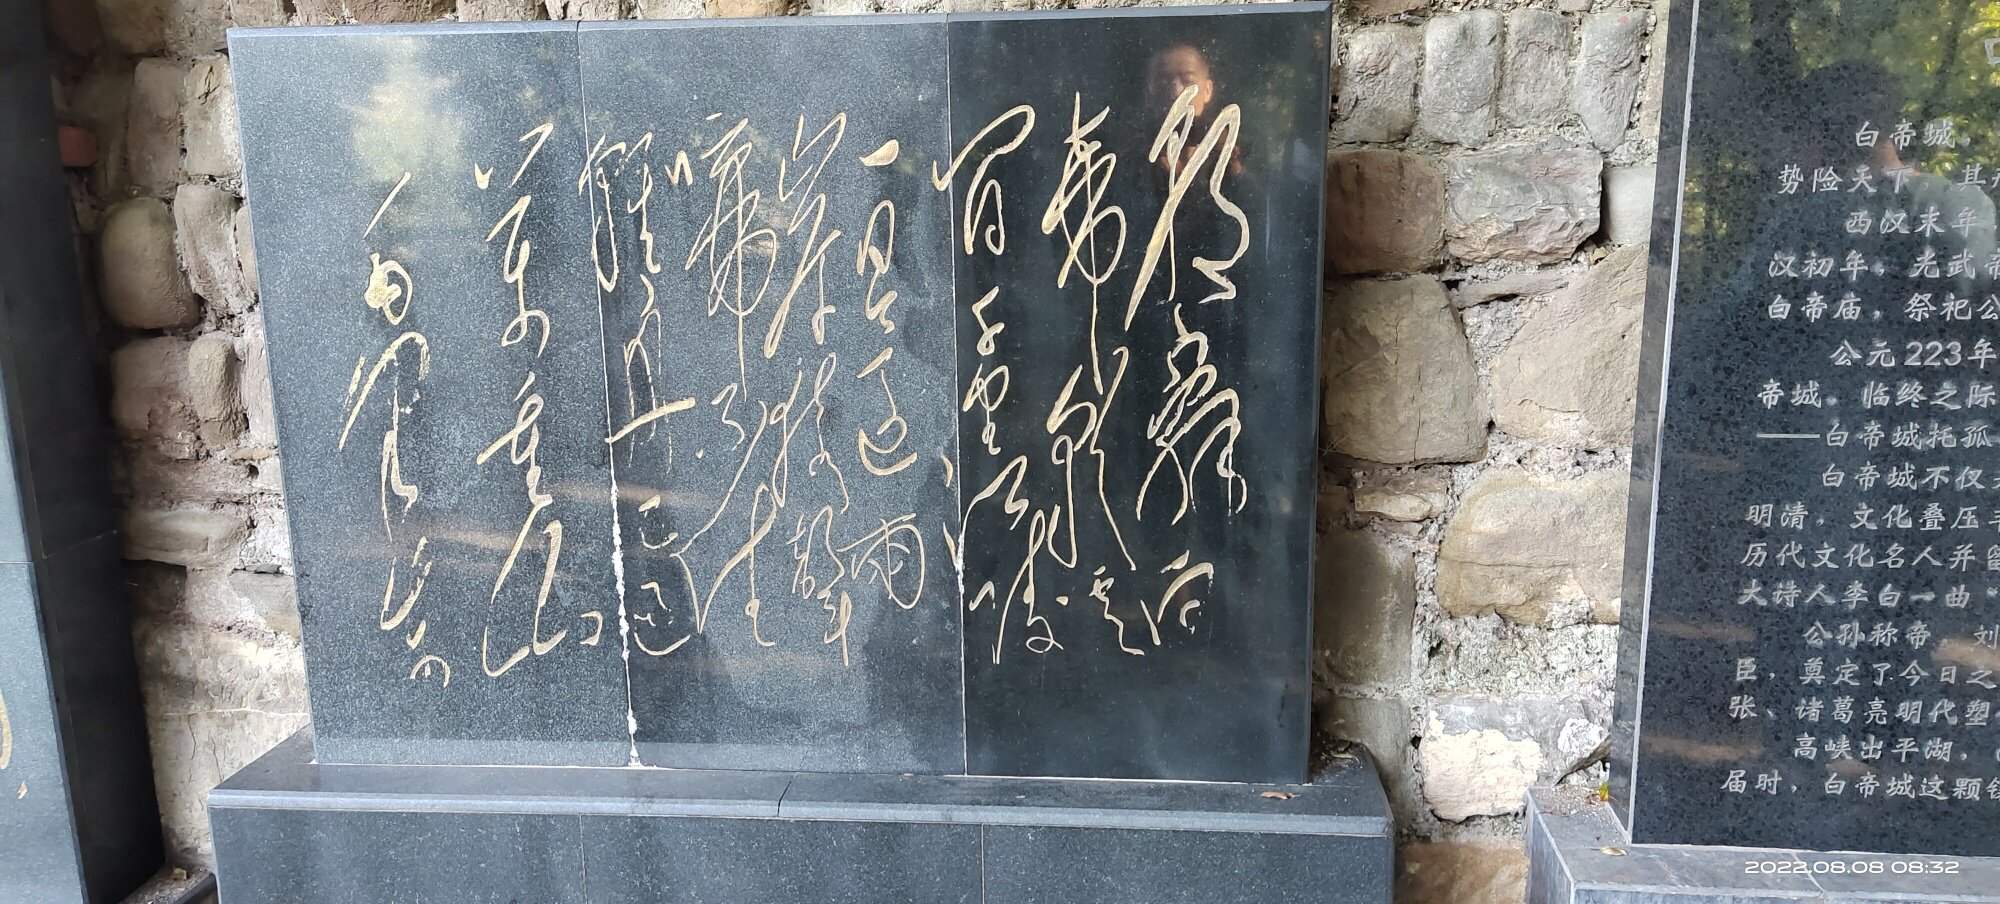 朝辭白
帝彩雲
間千里江陵
一日還兩
岸猿聲
啼不住
輕舟已過
萬重山
白帝城，
势险天下，其
西汉末年
汉初年，光武帝
白帝庙，祭祀公
公元223年
帝城。临终之际
——白帝城托孤
白帝城不仅
明清，文化叠压丰
历代文化名人并留
大诗人李白一曲“
公孙称帝，刘
臣，奠定了今日之
张、诸葛亮明代塑
高峡出平湖，
届时，白帝城这颗
2022.08.08 08:32